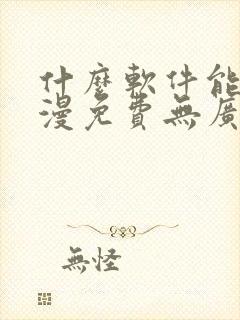 什麼軟件能
漫免費無廣
無怪